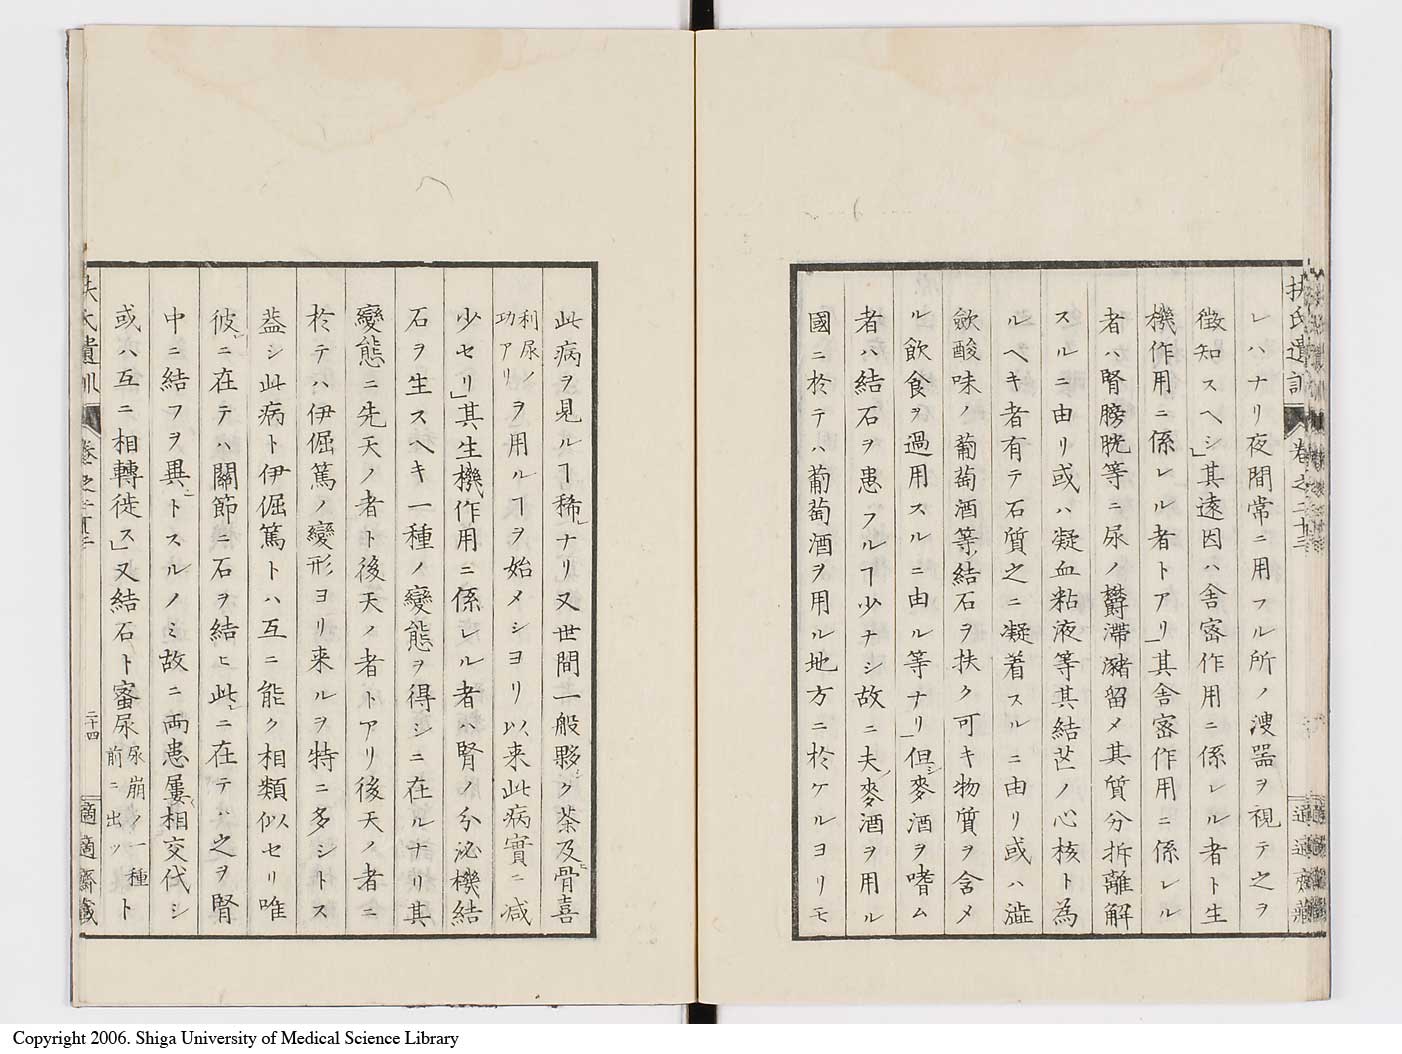 レハナリ夜間常ニ用フル所ノ溲器ヲ視テ之ヲ
徴知スヘシ」其遠因ハ舎密作用ニ係レル者ト生
機作用ニ係レル者トアリ」其舎密作用ニ係レル
者ハ腎膀胱等ニ尿ノ欝滞瀦留メ其質分拆離解
スルニ由リ或ハ凝血粘液等其結石ノ心核ト為
ルヘキ者有テ石質之ニ凝着スルニ由リ或ハ澁
歛酸味ノ葡萄酒等結石ヲ扶ク可キ物質ヲ含メ
ル飲食ヲ過用スルニ由ル等ナリ」但シ麥酒ヲ嗜ム
者ハ結石ヲ患フルヿ少ナシ故ニ夫ノ麥酒ヲ用ル
國ニ於テハ葡萄酒ヲ用ル地方ニ於ケルヨリモ
扶氏遺訓
巻之二十三
適適齋藏
此病ヲ見ルヿ稀ナリ又世間一般夥シク茶及ヒ骨喜
利尿ノ功アリヲ用ルヿヲ始メシヨリ以来此病實ニ减
少セリ」其生機作用ニ係レル者ハ腎ノ分泌機結
石ヲ生スヘキ一種ノ變態ヲ得シニ在ルナリ其
變態ニ先天ノ者ト後天ノ者トアリ後天ノ者ニ
於テハ伊倔篤ノ變形ヨリ来ルヲ特ニ多シトス
蓋シ此病ト伊倔篤トハ互ニ能ク相類似セリ唯
彼ニ在テハ關節ニ石ヲ結ヒ此ニ在テハ之ヲ腎
中ニ結フヲ異ニトスルノミ故ニ両患屢相交代シ
或ハ互ニ相轉徙ス」又結石ト審尿尿崩ノ一種前ニ出ツト
扶氏遺訓
二十四
適適齋藏
Copyright 2006. Shiga University of Medical Science Library